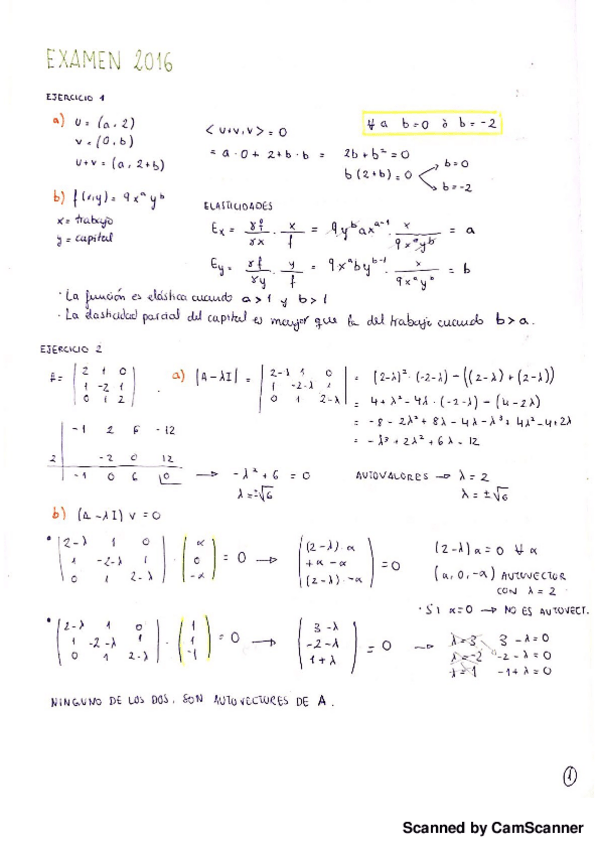 EXAMEN 2016
EJERCICIO 1
a) u = (a, 2)
v = (0, b)
u+v = (a, 2+b)
< u+v, v > = 0
= a · 0 + 2 + b · b = 2b + b² = 0
b (2+b) = 0
b = 0
b = -2
∀ a b=0 ò b=-2
b) f(x,y) = 9x^a y^b
x = trabajo
y = capital
ELASTICIDADES
Ex = γf/γx · x/f = 9y^b a x^(a-1) · x/(9x^a y^b) = a
Ey = γf/γy · y/f = 9x^a b y^(b-1) · x/(9x^a y^b) = b
· La función es elástica cuando a>1 y b>1
· La elasticidad parcial del capital es mayor que la del trabajo cuando b>a.
EJERCICIO 2
A = | 2 1 0 |
| 1 -2 1 |
| 0 1 2 |
a) |A-λI| = | 2-λ 1 0 |
| 1 -2-λ 1 |
| 0 1 2-λ |
= (2-λ)² · (-2-λ) - ((2-λ) + (2-λ))
= 4 + λ² - 4λ · (-2-λ) - (4-2λ)
= -8 - 2λ² + 8λ - 4λ - λ³ + 4λ² - 4 + 2λ
= -λ³ + 2λ² + 6λ - 12
-1 2 6 -12
2 -2 0 12
-1 0 6 0 → -λ² + 6 = 0
λ = ±√6
AUTOVALORES → λ = 2
λ = ±√6
b) (A - λI) v = 0
• | 2-λ 1 0 | · | α | = 0 → | (2-λ) · α | = 0
| 1 -2-λ 1 | | 0 | | +α -α |
| 0 1 2-λ | | -α | | (2-λ) · -α |
(2-λ) α = 0 ∀ α
(α, 0, -α) AUTOVECTOR
CON λ = 2
· SI α=0 → NO ES AUTOVECT.
• | 2-λ 1 0 | · | 1 | = 0 → | 3-λ | = 0 →
| 1 -2-λ 1 | | 1 | | -2-λ |
| 0 1 2-λ | | -1 | | 1+λ |
λ=3 3-λ=0
λ=-2 -2-λ=0
λ=1 -1+λ=0
NINGUNO DE LOS DOS, SON AUTOVECTORES DE A.
1
Scanned by CamScanner